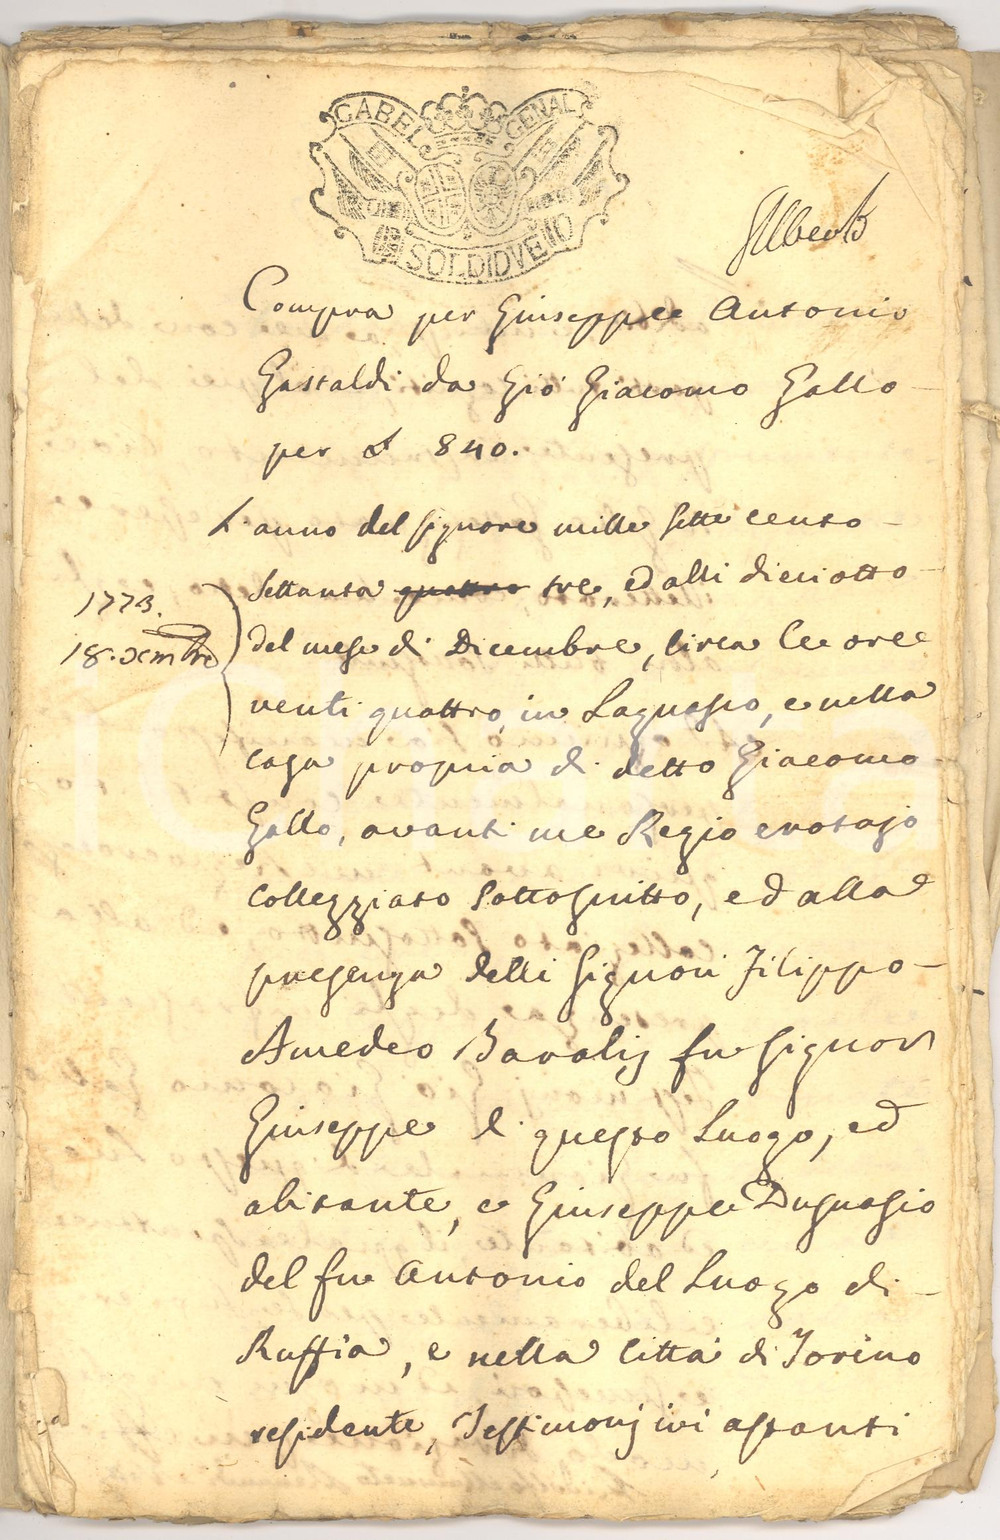 GABEL GENAL
SOLDI DVE
Alberti
Compra per Giuseppe Antonio
Gastaldi da Gio Giacomo Gallo
per £ 840.
L'anno del Signore mille sette cento
settanta quattro tre, ed alli dieciotto
del mese di Dicembre, circa le ore
venti quattro, in Lagnasco, e nella
casa propria di detto Giacomo
Gallo, avanti me Regio notajo
Colleggiato sottoscritto, ed alla
presenza delli Signori Filippo
Amedeo Bavalis fu Signor
Giuseppe di questo Luogo, ed
abitante, e Giuseppe
del fu Antonio del Luogo di
Ruffia, e nella Città di Torino
residente, Testimonj ivi astanti
1773.
18. Xmbre